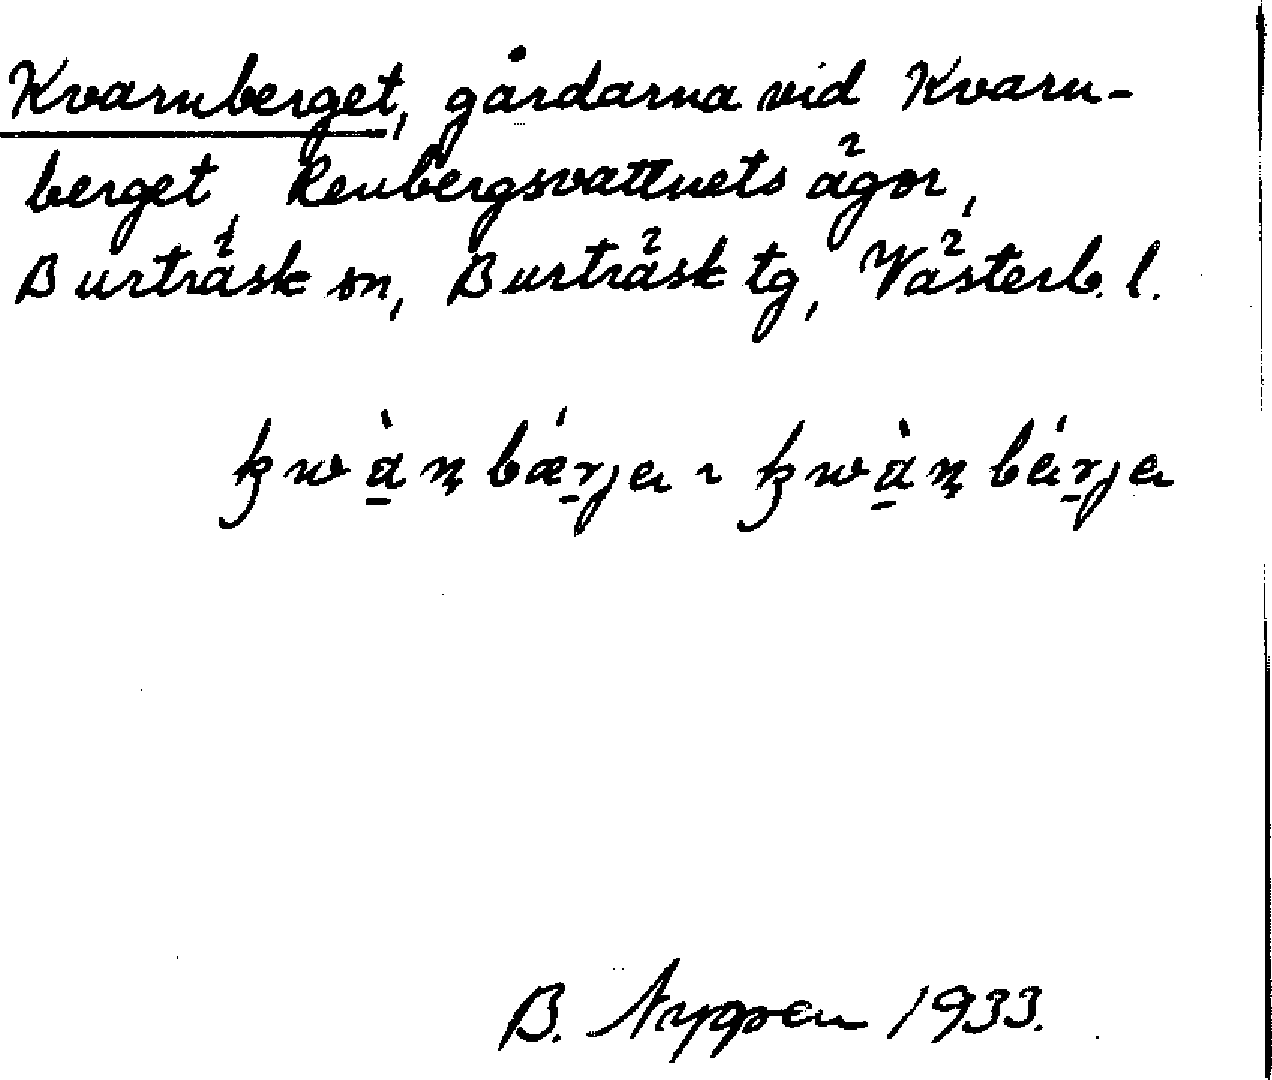 Kvarnberget, gårdarna vid Kvarn-
berget, Renbergsvattnets ägor,
Burträsk sn, Burträsk tg, Västerb. l.
B. Nygren 1933.